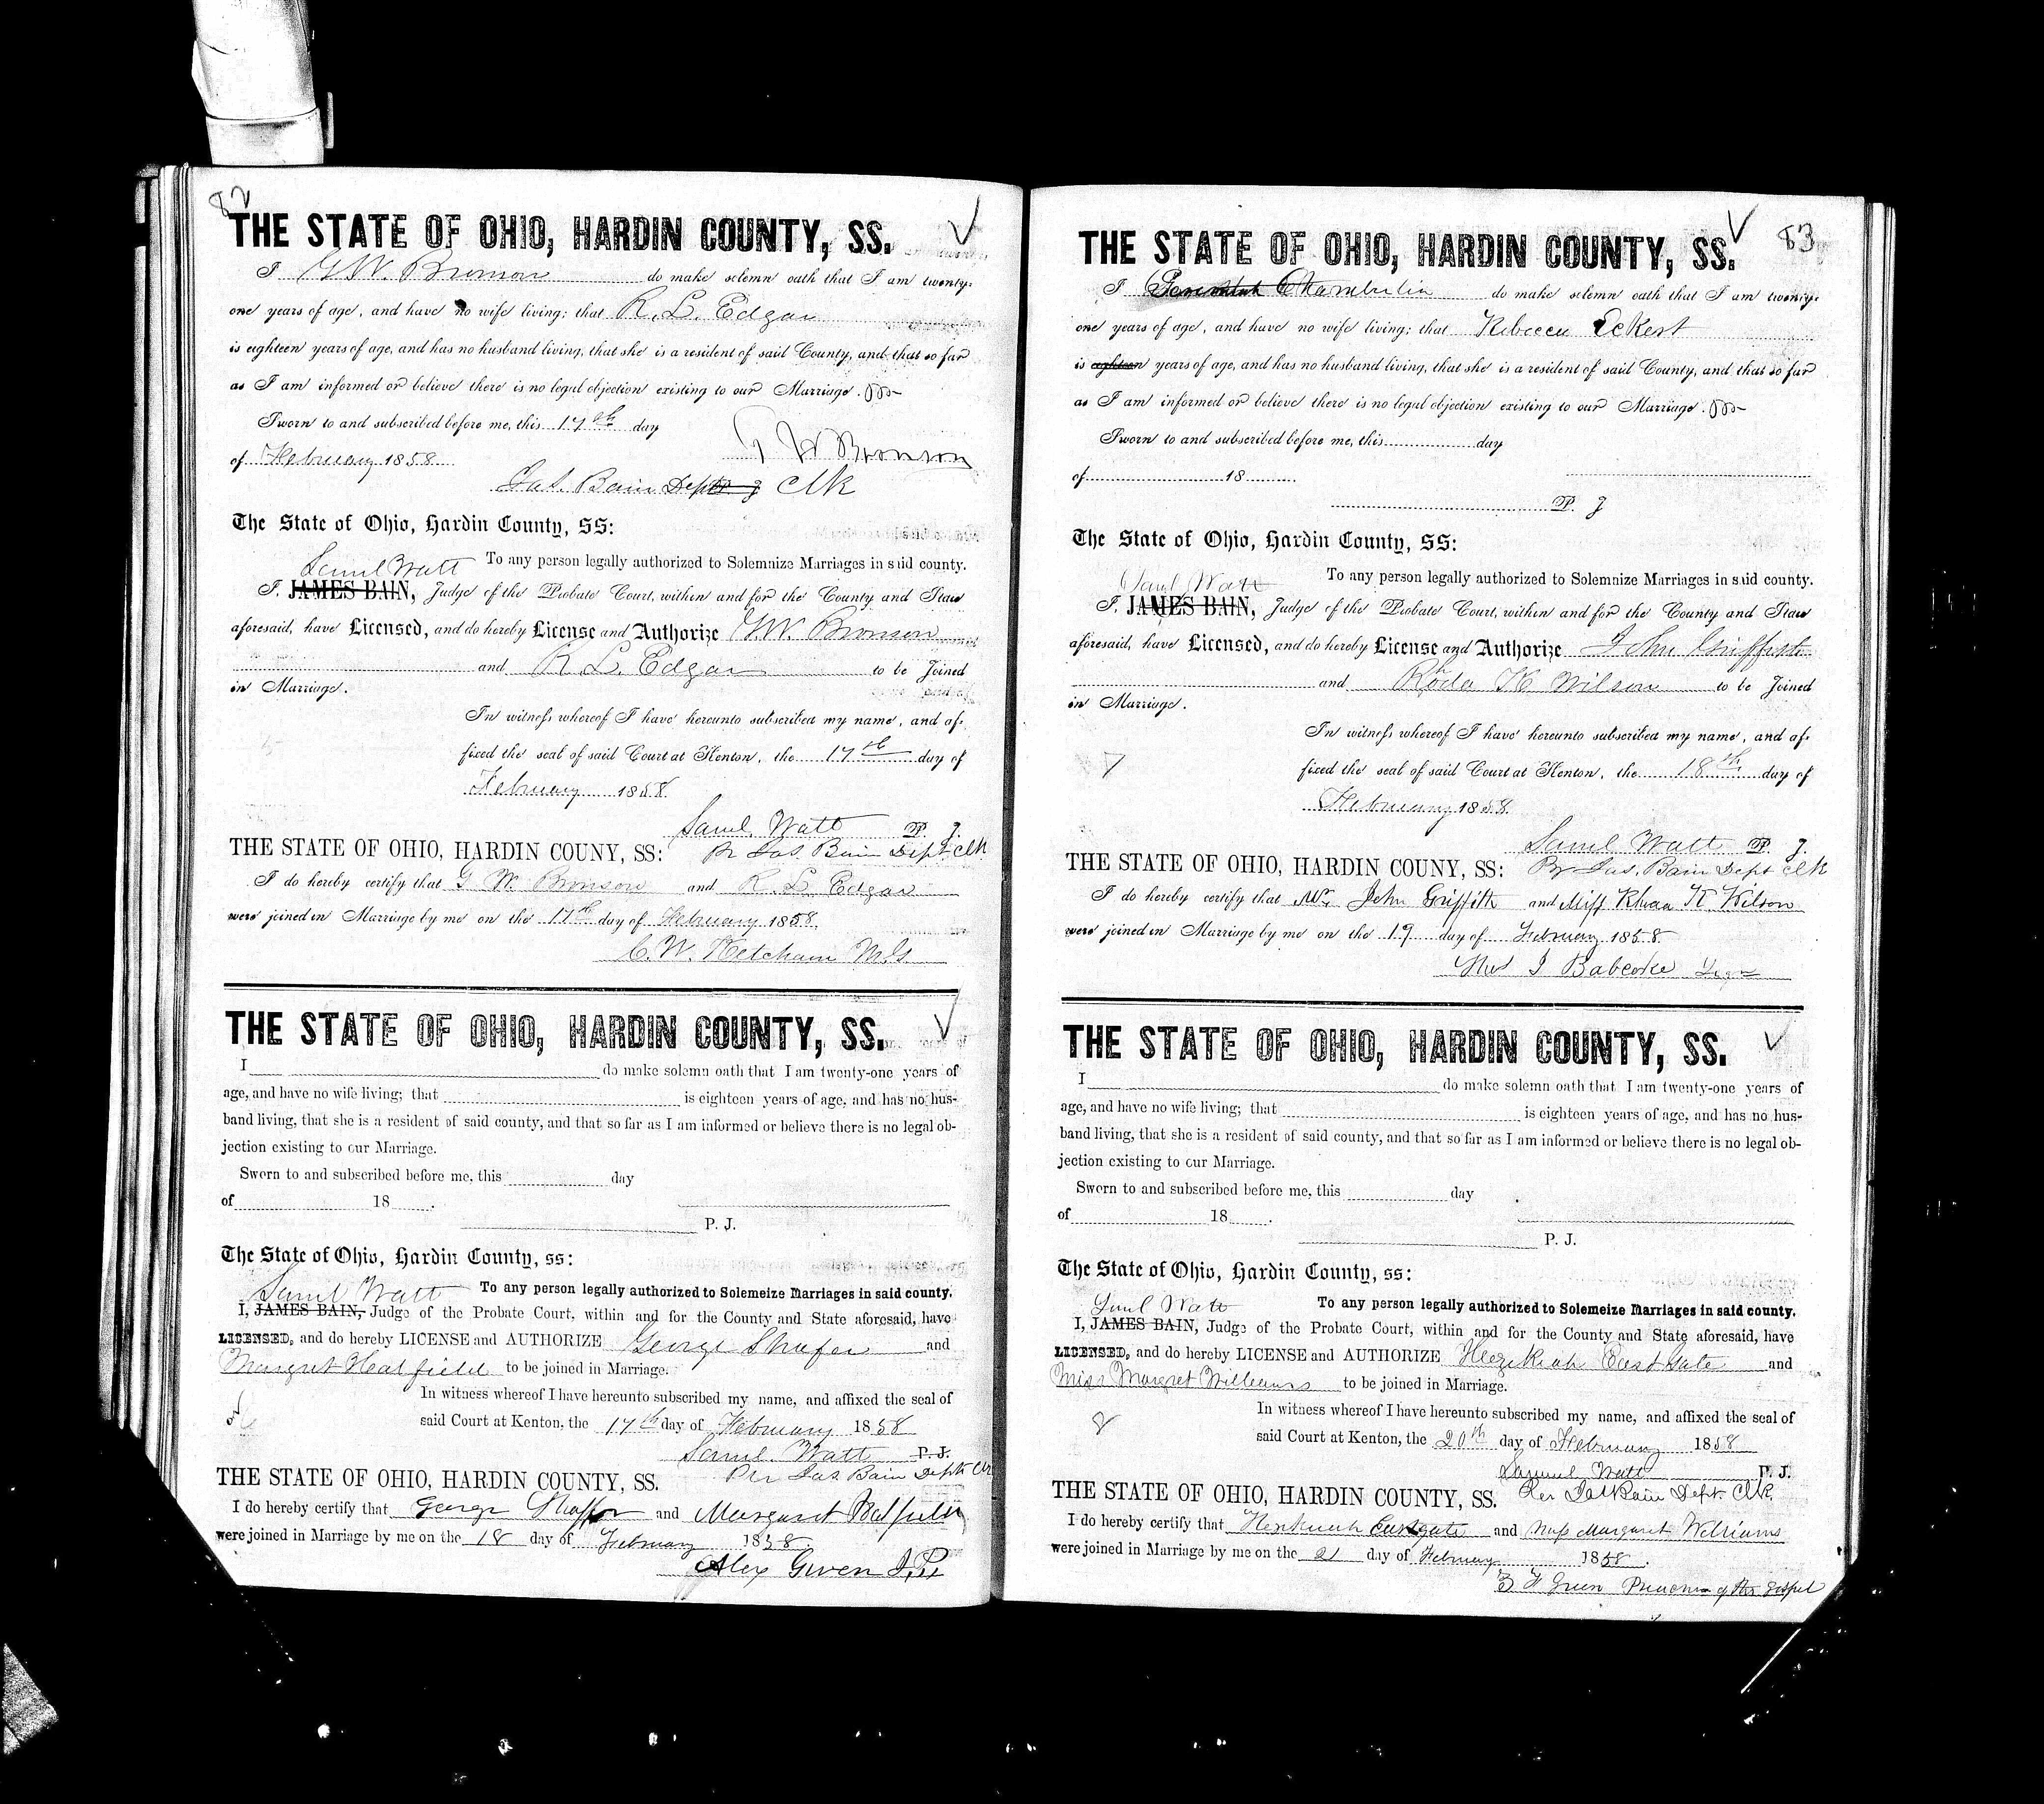 82
THE STATE OF OHIO, HARDIN COUNTY, SS.
I G.W. Bronson do make solemn oath that I am twenty-
one years of age, and have no wife living; that R. L. Edgar
is eighteen years of age, and has no husband living, that she is a resident of said County, and that so far
as I am informed or believe there is no legal objection existing to our Marriage.
Sworn to and subscribed before me, this 17th day
of February 1858. G W Bronson
Jas. Bain Dept Clk
The State of Ohio, Hardin County, SS:
Saml Watt To any person legally authorized to Solemnize Marriages in said county.
I, JAMES BAIN, Judge of the Probate Court, within and for the County and State
aforesaid, have Licensed, and do hereby License and Authorize G.W. Bronson
and R. L. Edgar to be Joined
in Marriage.
In witness whereof I have hereunto subscribed my name, and af-
fixed the seal of said Court at Kenton, the 17th day of
February 1858.
Saml. Watt P. J.
THE STATE OF OHIO, HARDIN COUNY, SS: Pr Jas. Bain Dept. Clk
I do hereby certify that G W. Bronson and R. L. Edgar
were joined in Marriage by me on the 17th day of February 1858.
C. W. Ketcham M.G.
THE STATE OF OHIO, HARDIN COUNTY, SS.
I do make solemn oath that I am twenty-one years of
age, and have no wife living; that is eighteen years of age, and has no hus-
band living, that she is a resident of said county, and that so far as I am informed or believe there is no legal ob-
jection existing to our Marriage.
Sworn to and subscribed before me, this day
of 18 .
P. J.
The State of Ohio, Hardin County, ss:
Saml Watt To any person legally authorized to Solemeize Marriages in said county.
I, JAMES BAIN, Judge of the Probate Court, within and for the County and State aforesaid, have
LICENSED, and do hereby LICENSE and AUTHORIZE George Shafer and
Margret Hatfield to be joined in Marriage.
In witness whereof I have hereunto subscribed my name, and affixed the seal of
said Court at Kenton, the 17th day of February 1858
Saml. Watt P. J.
THE STATE OF OHIO, HARDIN COUNTY, SS. Per Jas Bain Dept Clk
I do hereby certify that George and Margaret Hatfield
were joined in Marriage by me on the 18 day of February 1858.
Alex Given J.P.
83
THE STATE OF OHIO, HARDIN COUNTY, SS.
I Jeremiah Chamberlin do make solemn oath that I am twenty-
one years of age, and have no wife living; that Rebecca Eckert
is eighteen years of age, and has no husband living, that she is a resident of said County, and that so far
as I am informed or believe there is no legal objection existing to our Marriage.
Sworn to and subscribed before me, this day
of 18
P. J
The State of Ohio, Hardin County, SS:
Saml Watt To any person legally authorized to Solemnize Marriages in said county.
I, JAMES BAIN, Judge of the Probate Court, within and for the County and State
aforesaid, have Licensed, and do hereby License and Authorize John Griffith
and Rhoda K Wilson to be Joined
in Marriage.
In witness whereof I have hereunto subscribed my name, and af-
7 fixed the seal of said Court at Kenton, the 18th day of
February 1858.
Saml Watt P. J.
THE STATE OF OHIO, HARDIN COUNY, SS: By Jas. Bain Dept Clk
I do hereby certify that Mr. John Griffith and Miss K Wilson
were joined in Marriage by me on the 19 day of February 1858
J Babcocke
THE STATE OF OHIO, HARDIN COUNTY, SS.
I do make solemn oath that I am twenty-one years of
age, and have no wife living; that is eighteen years of age, and has no hus-
band living, that she is a resident of said county, and that so far as I am informed or believe there is no legal ob-
jection existing to our Marriage.
Sworn to and subscribed before me, this day
of 18 .
P. J.
The State of Ohio, Hardin County, ss:
Saml Watt To any person legally authorized to Solemeize Marriages in said county.
I, JAMES BAIN, Judge of the Probate Court, within and for the County and State aforesaid, have
LICENSED, and do hereby LICENSE and AUTHORIZE Hezekiah Eastgate and
Miss Margret Williams to be joined in Marriage.
In witness whereof I have hereunto subscribed my name, and affixed the seal of
8 said Court at Kenton, the 20th day of February 1858
Samuel Watt P. J.
THE STATE OF OHIO, HARDIN COUNTY, SS. Per Jas Bain Dept Clk.
I do hereby certify that Eastgate and Miss Margaret Williams
were joined in Marriage by me on the 21 day of February 1858.
Green Preacher of the Gospel